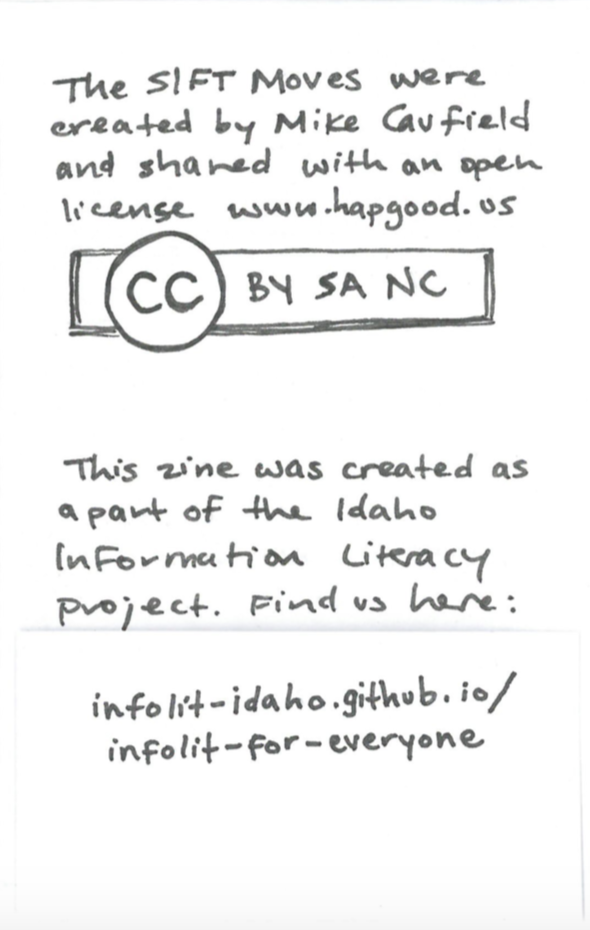 The SIFT Moves were
created by Mike Caufield
and shared with an open
license www.hapgood.us
CC BY SA NC
This zine was created as
a part of the Idaho
Information Literacy
project. Find us here:
infolit-idaho.github.io/
infolit-for-everyone